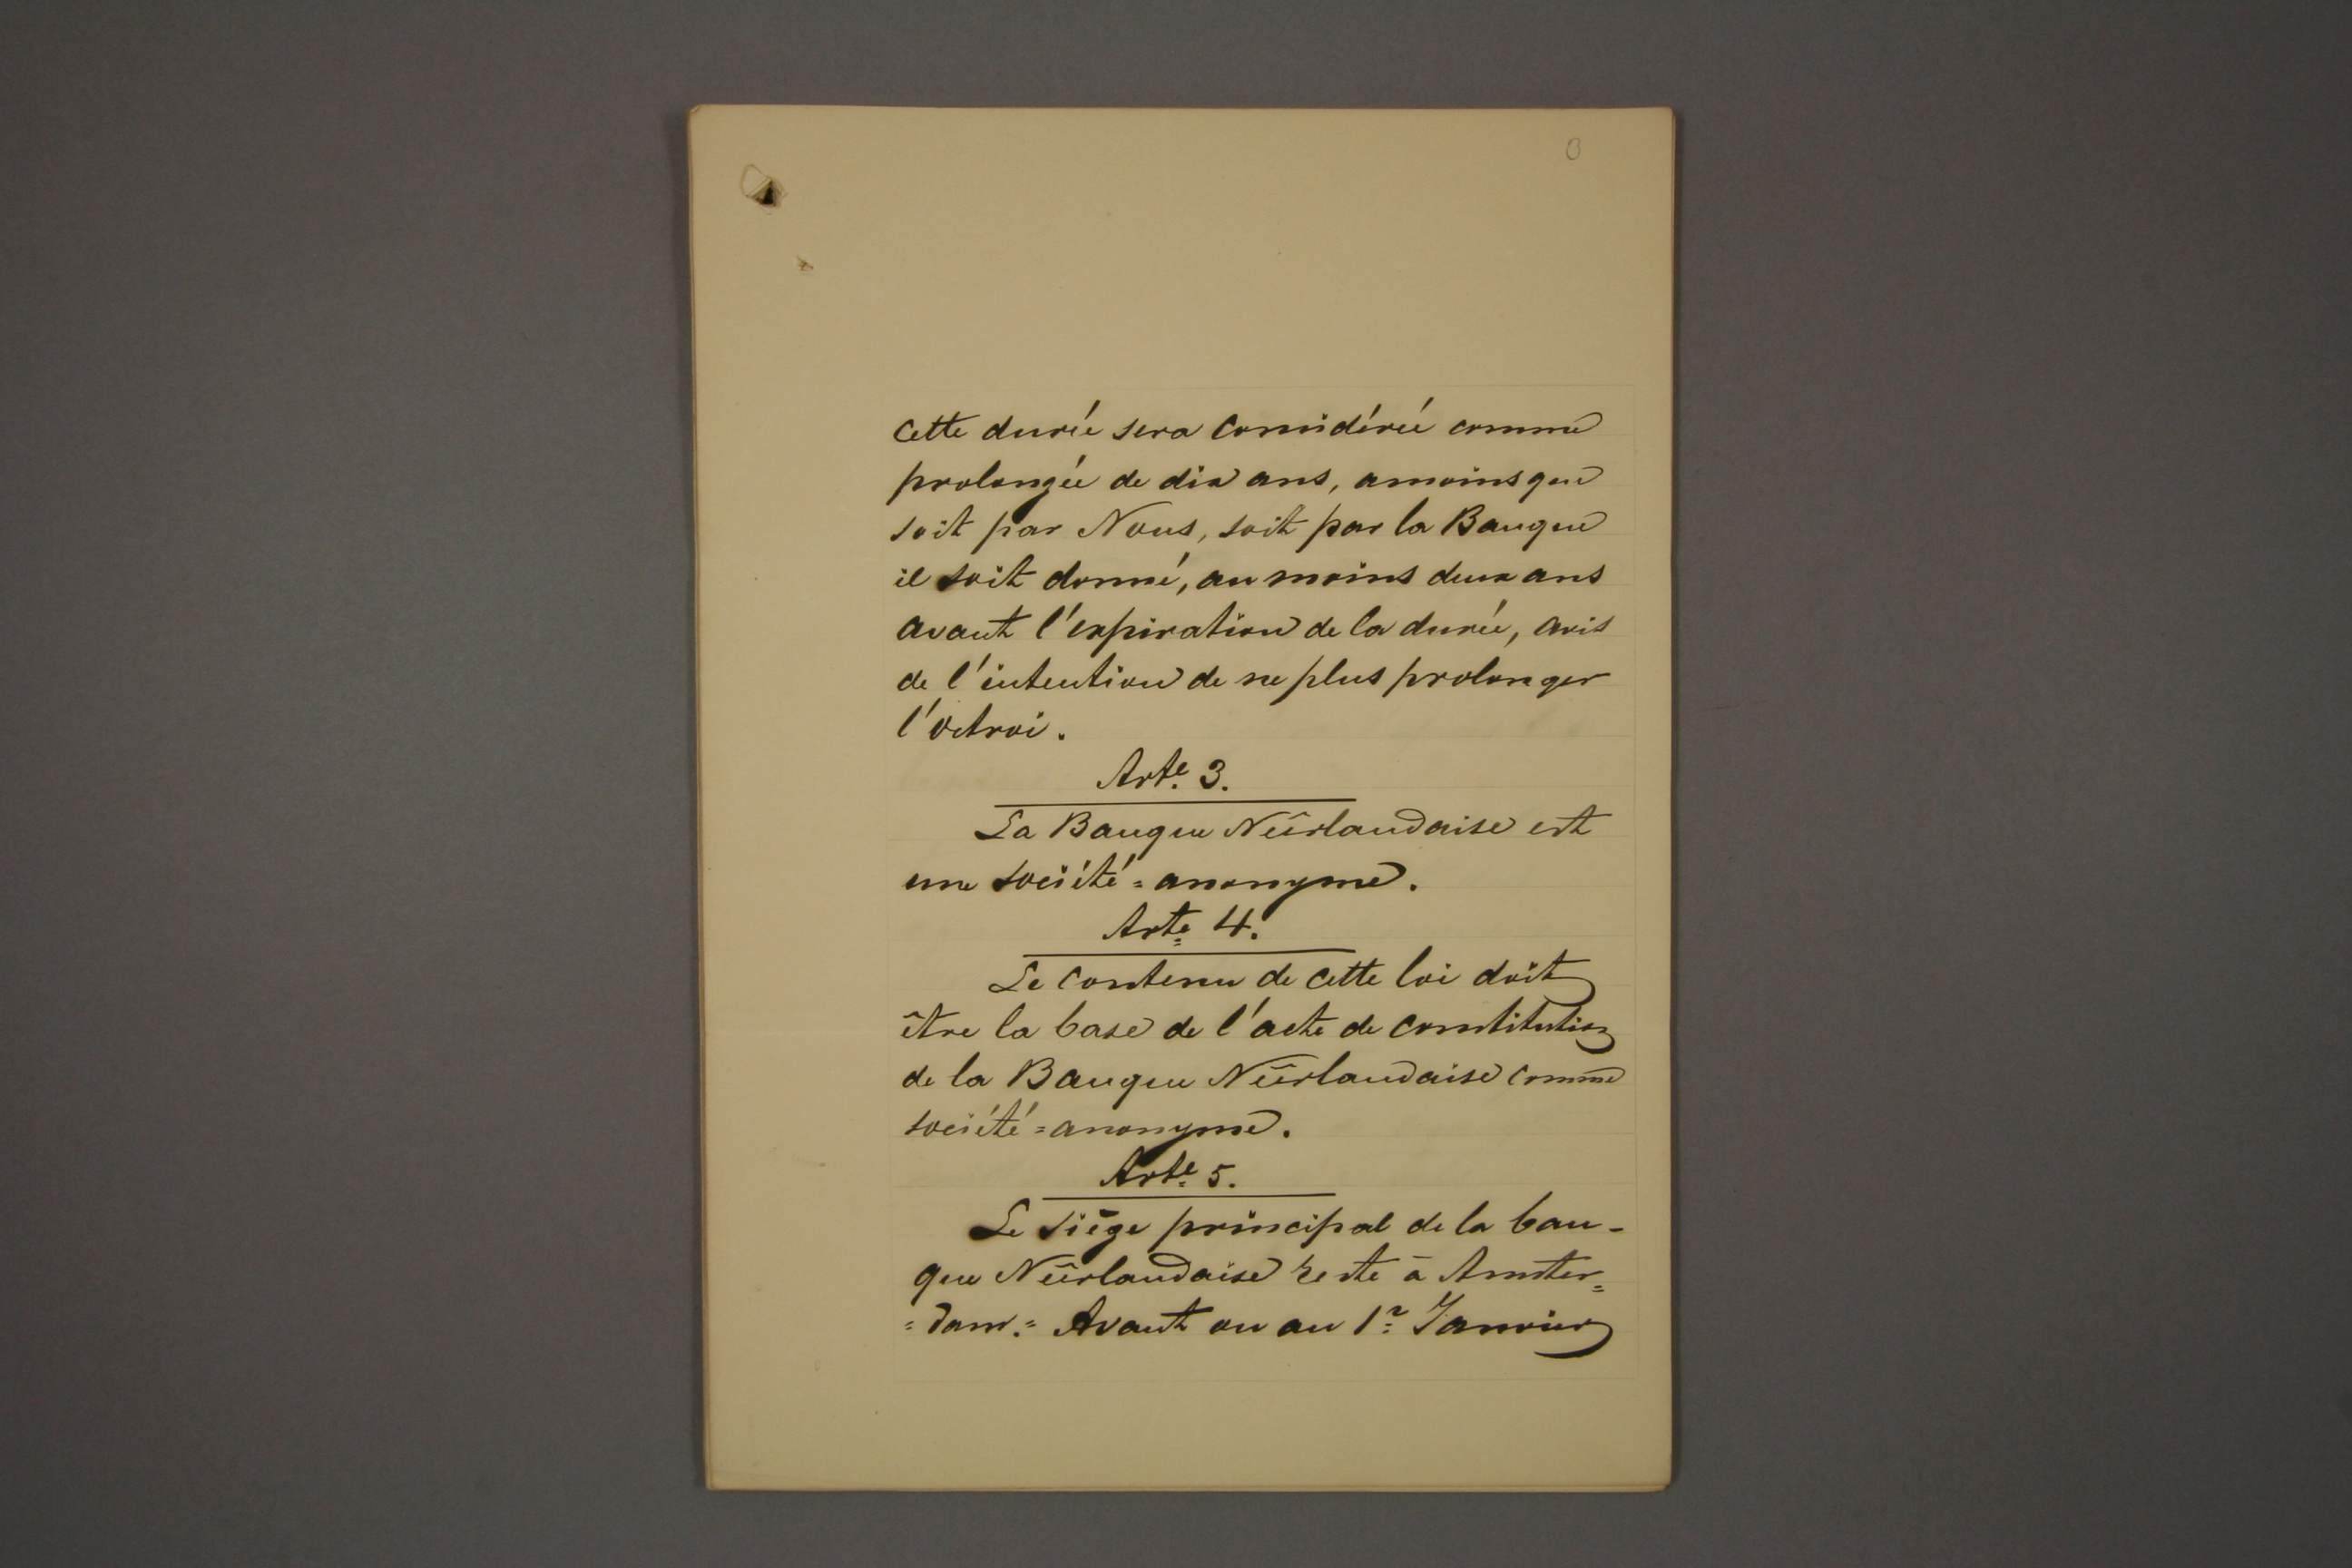 cette durée sera considérée comme
prolongée de dix ans, a moins que
soit par Nous, soit par la Banque
il soit donné, au moins deux ans
avant l'expiration de la durée, avis
de l'intention de ne plus prolonger
l'octroi.
Arte. 3.
La Banque Néêrlandaise est
une société=anonyme.
Arte. 4.
Le contenu de cette loi doit
être la base de l'acte de constitution
de la Banque Néêrlandaise comme
société=anonyme.
Arte. 5.
Le siège principal de la ban-
que Néêrlandaise reste à Amster=
=dam.= Avant ou au 1r Janvier